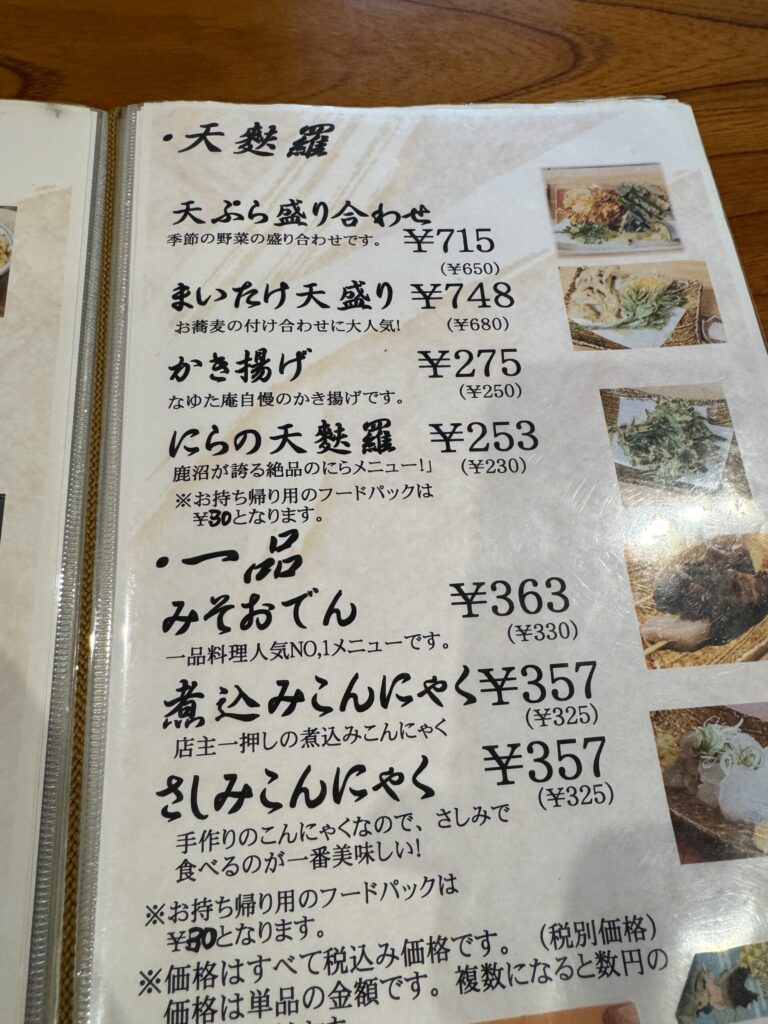 ・天麩羅
天ぷら盛り合わせ
季節の野菜の盛り合わせです。 ¥715
(¥650)
まいたけ天盛り ¥748
お蕎麦の付け合わせに大人気! (¥680)
かき揚げ ¥275
なゆた庵自慢のかき揚げです。 (¥250)
にらの天麩羅 ¥253
鹿沼が誇る絶品のにらメニュー!」 (¥230)
※お持ち帰り用のフードパックは
¥30となります。
・一品
みそおでん ¥363
一品料理人気NO,1メニューです。 (¥330)
煮込みこんにゃく ¥357
店主一押しの煮込みこんにゃく (¥325)
さしみこんにゃく ¥357
(¥325)
手作りのこんにゃくなので、さしみで
食べるのが一番美味しい!
※お持ち帰り用のフードパックは
¥30となります。
※価格はすべて税込み価格です。(税別価格)
価格は単品の金額です。複数になると数円の